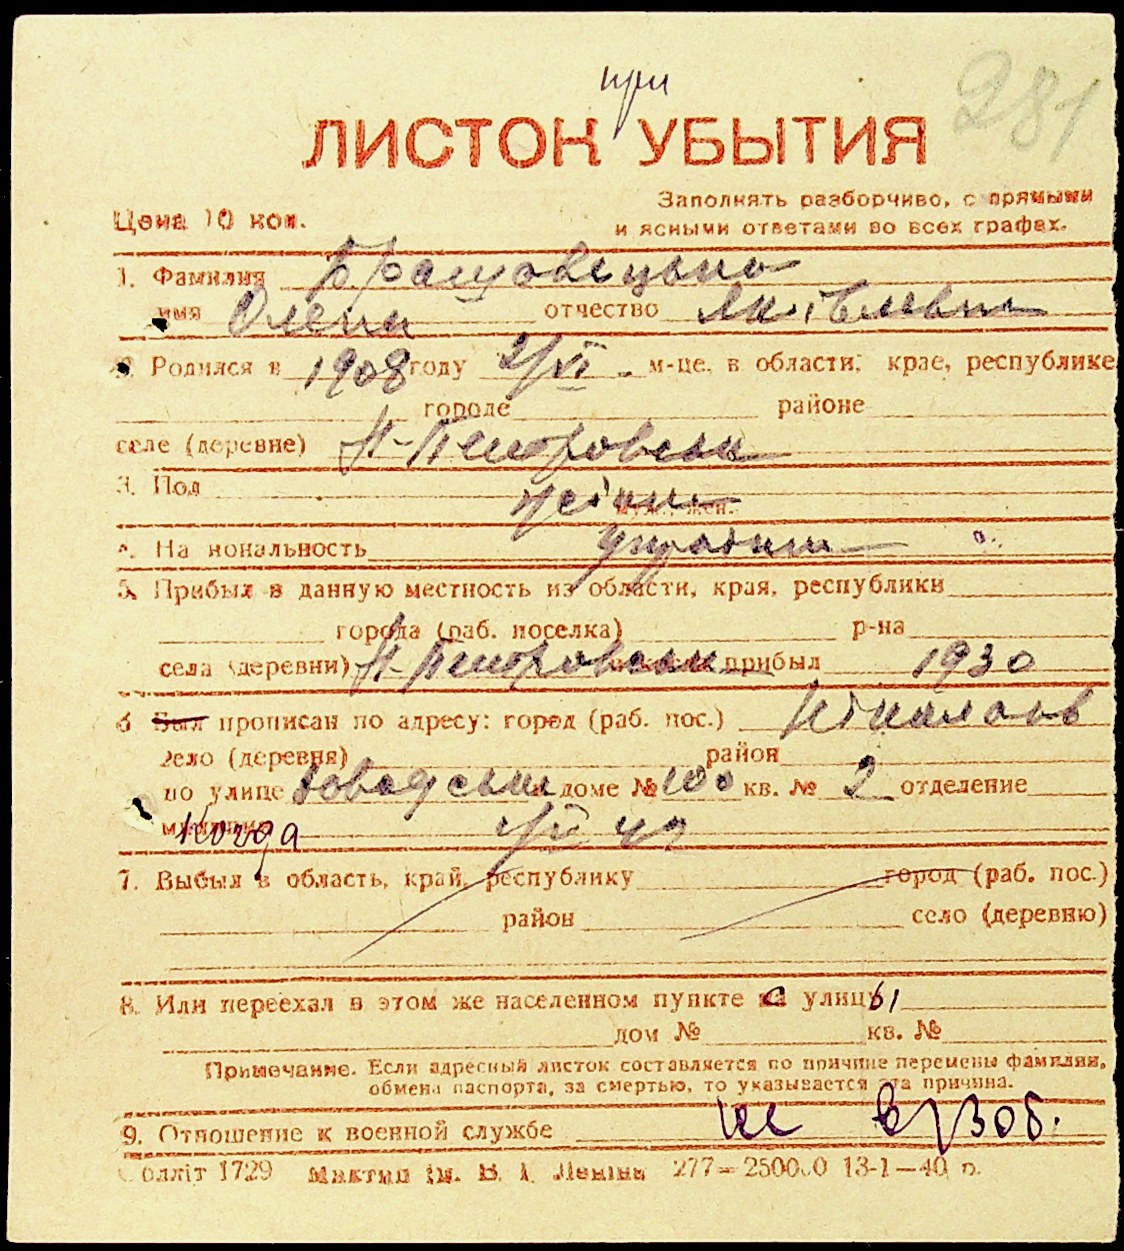 при
281
ЛИСТОК УБЫТИЯ
Заполнять разборчиво, с прямыми
Цена 10 коп.
и ясными ответами во всех графах.
1. Фамилия
имя Олена отчество Яківлевна
2. Родился в 1908 году 2/VI м-це, в области, крае, республике
городе районе
селе (деревне) Н-Петровськ
3. Пол
муж. жен.
4. Национальность
5. Прибыл в данную местность из области, края, республики
города (раб. поселка) р-на
села (деревни) Н-Петровськ прибыл 1930
6 Был прописан по адресу: город (раб. пос.) Ніколаєв
село (деревня) район
по улице доме № 100 кв. № 2 отделение
милиции
Когда
7. Выбыл в область, край, республику город (раб. пос.)
район село (деревню)
8. Или переехал в этом же населенном пункте с улицы
дом № кв. №
Примечание. Если адресный листок составляется по причине перемены фамилии,
обмена паспорта, за смертью, то указывается эта причина.
9. Отношение к военной службе не в/воб.
Облліт 1729 Миктип ім. В. І. Леніна 277—250000 13-1—40 р.